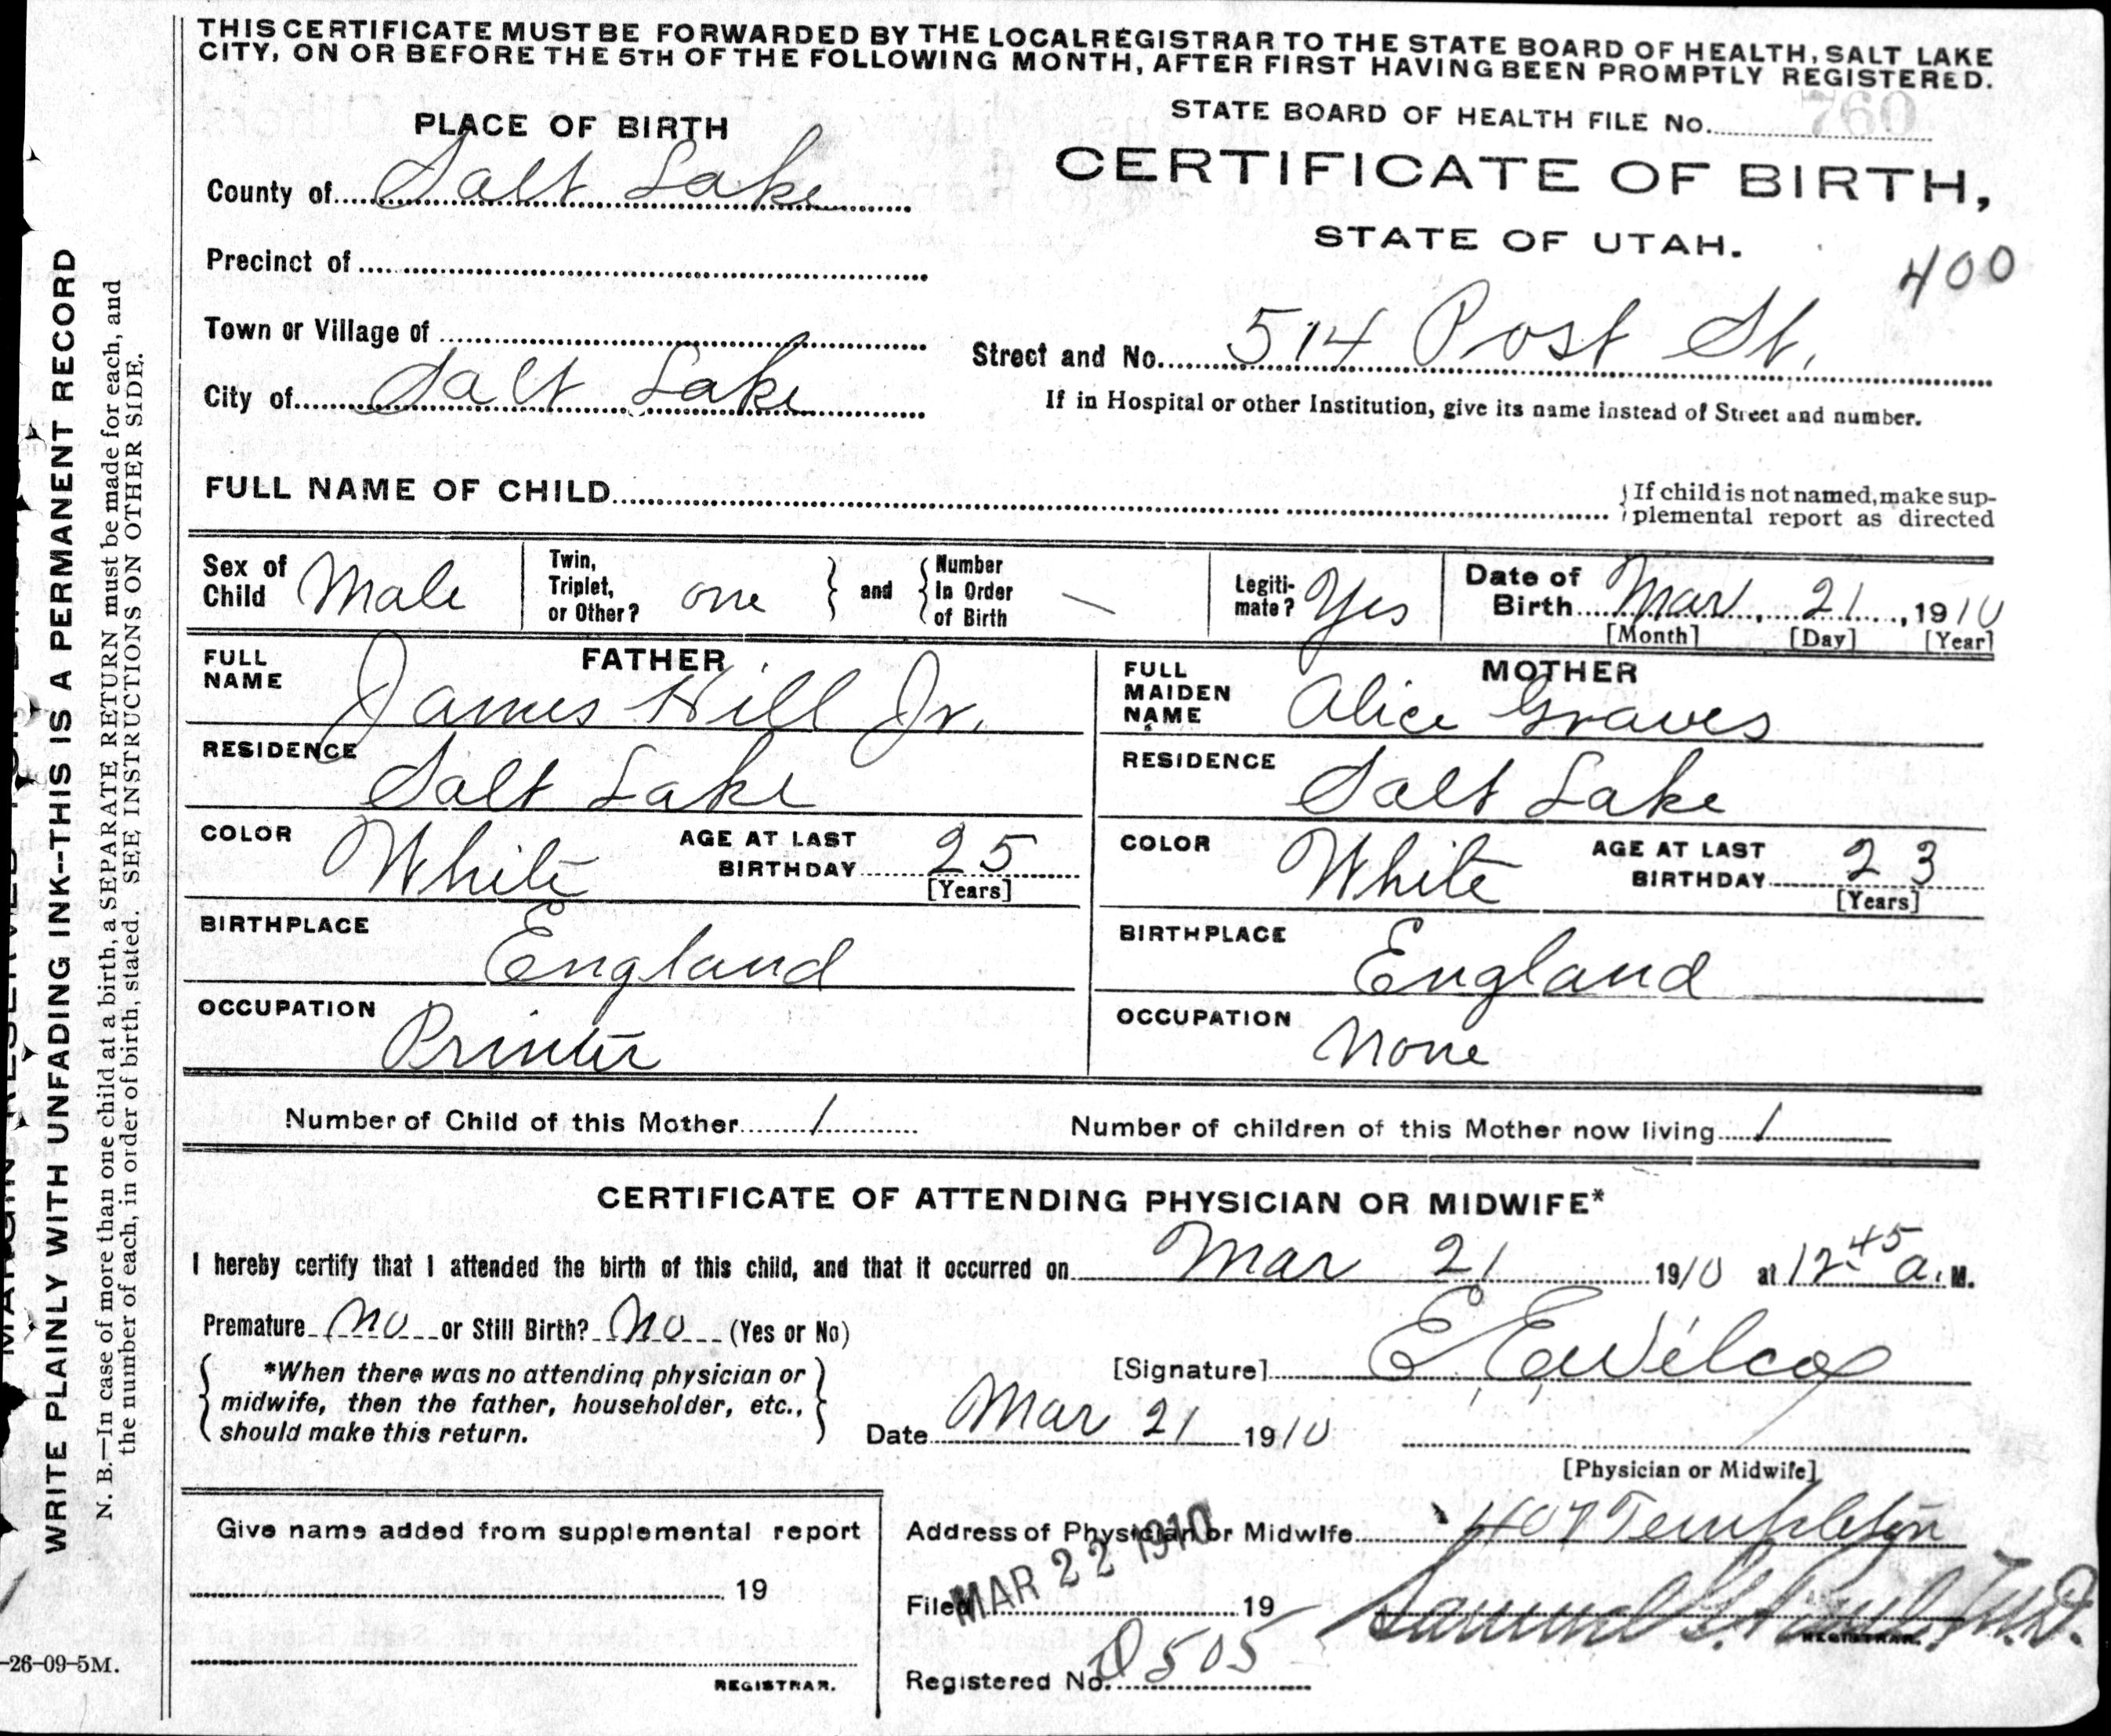 THIS CERTIFICATE MUST BE FORWARDED BY THE LOCAL REGISTRAR TO THE STATE BOARD OF HEALTH, SALT LAKE
CITY, ON OR BEFORE THE 5TH OF THE FOLLOWING MONTH, AFTER FIRST HAVING BEEN PROMPTLY REGISTERED.
STATE BOARD OF HEALTH FILE No. 760
PLACE OF BIRTH
CERTIFICATE OF BIRTH,
STATE OF UTAH.
County of Salt Lake
Precinct of
400
Town or Village of
Street and No. 514 Post St.
City of Salt Lake
If in Hospital or other Institution, give its name instead of Street and number.
FULL NAME OF CHILD
If child is not named, make sup-
plemental report as directed
Sex of Child Male
Twin, Triplet, or Other? one and Number In Order of Birth —
Legiti-mate? Yes
Date of Birth Mar 21, 1910
[Month] [Day] [Year]
FATHER
FULL NAME James Hill Jr.
RESIDENCE Salt Lake
COLOR White AGE AT LAST BIRTHDAY 25
[Years]
BIRTHPLACE England
OCCUPATION Printer
MOTHER
FULL MAIDEN NAME Alice Graves
RESIDENCE Salt Lake
COLOR White AGE AT LAST BIRTHDAY 23
[Years]
BIRTHPLACE England
OCCUPATION None
Number of Child of this Mother 1 Number of children of this Mother now living 1
CERTIFICATE OF ATTENDING PHYSICIAN OR MIDWIFE*
I hereby certify that I attended the birth of this child, and that it occurred on Mar 21 1910 at 12 45 a. M.
Premature No or Still Birth? No (Yes or No)
*When there was no attending physician or
midwife, then the father, householder, etc.,
should make this return.
[Signature] E. E. Wilcox
Date Mar 21 1910
[Physician or Midwife]
Give name added from supplemental report
19
REGISTRAR.
Address of Physician or Midwife 407 Templeton
Filed MAR 22 1910 19
Samuel G. Paul, M.D.
REGISTRAR.
Registered No. 505
WRITE PLAINLY WITH UNFADING INK--THIS IS A PERMANENT RECORD
N. B.—In case of more than one child at a birth, a SEPARATE RETURN must be made for each, and
the number of each, in order of birth, stated. SEE INSTRUCTIONS ON OTHER SIDE.
-26-09-5M.